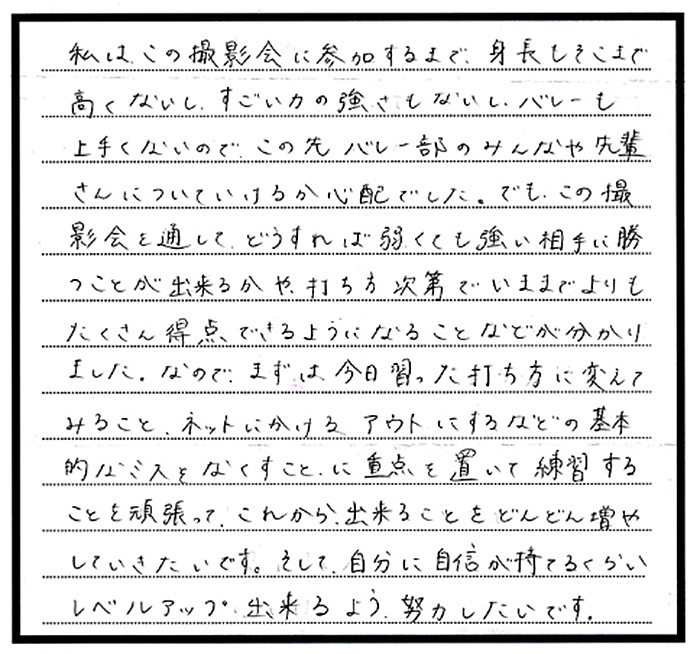 私は、この撮影会に参加するまで、身長もそこまで
高くないし、すごい力の強さもないし、バレーも
上手くないので、この先バレー部のみんなや先輩
さんについていけるか心配でした。でも、この撮
影会を通して、どうすれば弱くても強い相手に勝
つことが出来るかや、打ち方次第でいままでよりも
たくさん得点できるようになることなどが分かり
ました。なので、まずは今日習った打ち方に変えて
みること、ネットにかける、アウトにするなどの基本
的なミスをなくすこと、に重点を置いて練習する
ことを頑張って、これから、出来ることをどんどん増や
していきたいです。そして、自分に自信が持てるくらい
レベルアップ出来るよう、努力したいです。